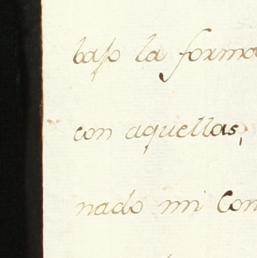 bajo la forma
con aquellas,
nado mi Con